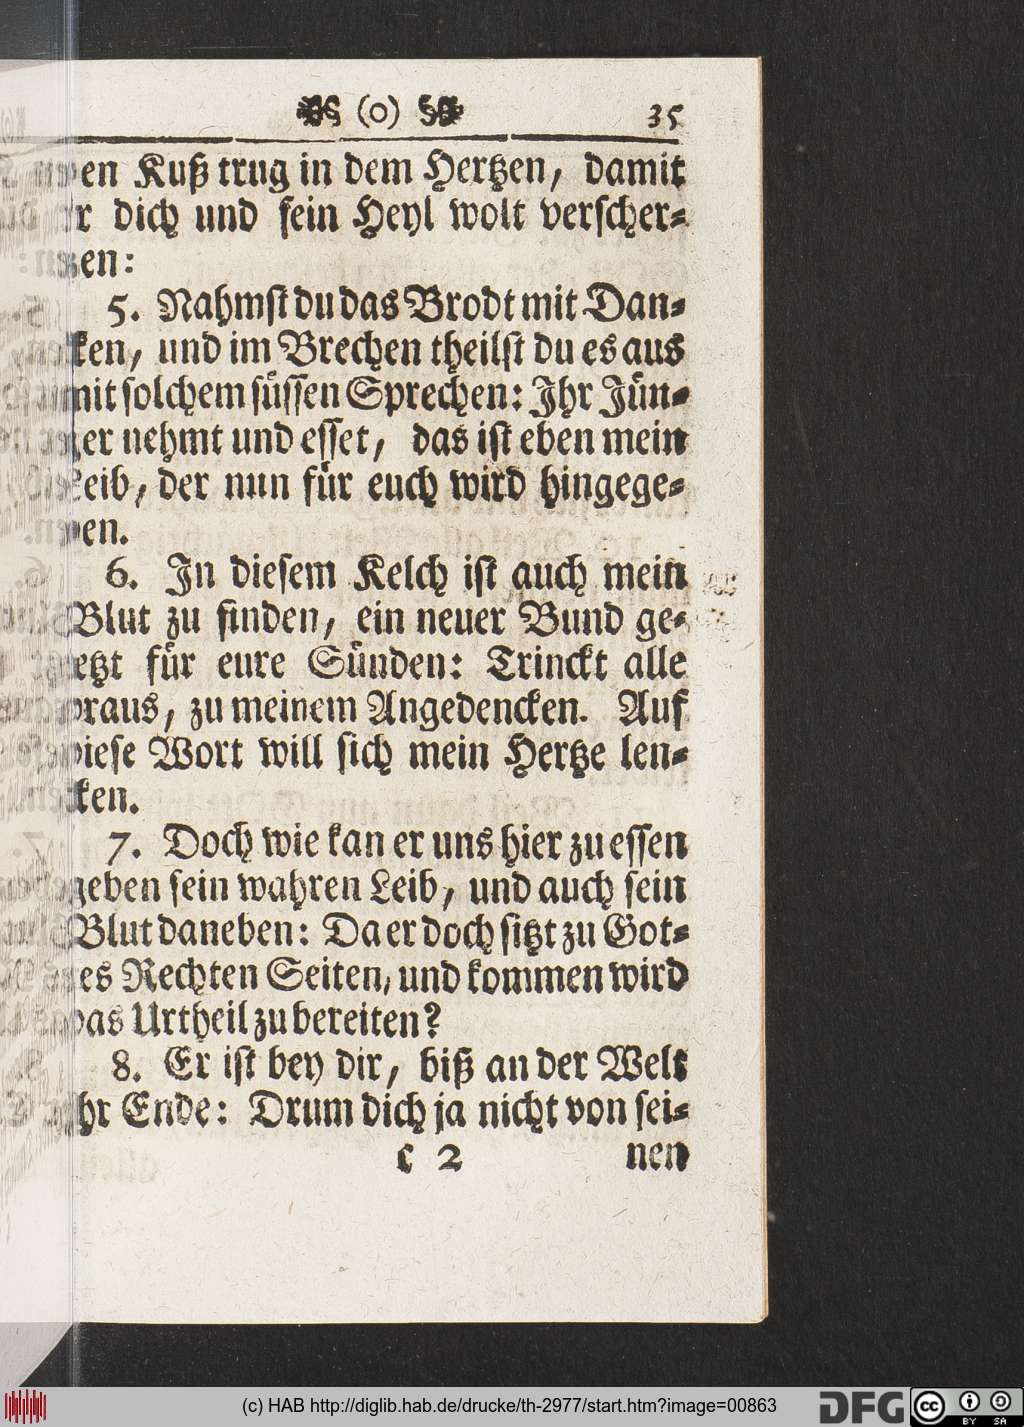 (o) 35
en Kuß trug in dem Hertzen, damit
er dich und sein Heyl wolt verscher-
tzen:
5. Nahmst du das Brodt mit Dan-
cken, und im Brechen theilst du es aus
mit solchem süssen Sprechen: Ihr Jün-
ger nehmt und esset, das ist eben mein
Leib, der nun für euch wird hingege-
ben.
6. In diesem Kelch ist auch mein
Blut zu finden, ein neuer Bund ge-
setzt für eure Sünden: Trinckt alle
draus, zu meinem Angedencken. Auf
diese Wort will sich mein Hertze len-
cken.
7. Doch wie kan er uns hier zu essen
geben sein wahren Leib, und auch sein
Blut daneben: Da er doch sitzt zu Got-
tes Rechten Seiten, und kommen wird
das Urtheil zu bereiten?
8. Er ist bey dir, biß an der Welt
ihr Ende: Drum dich ja nicht von sei-
c 2 nen
(c) HAB http://diglib.hab.de/drucke/th-2977/start.htm?image=00863
DFG
cc BY SA